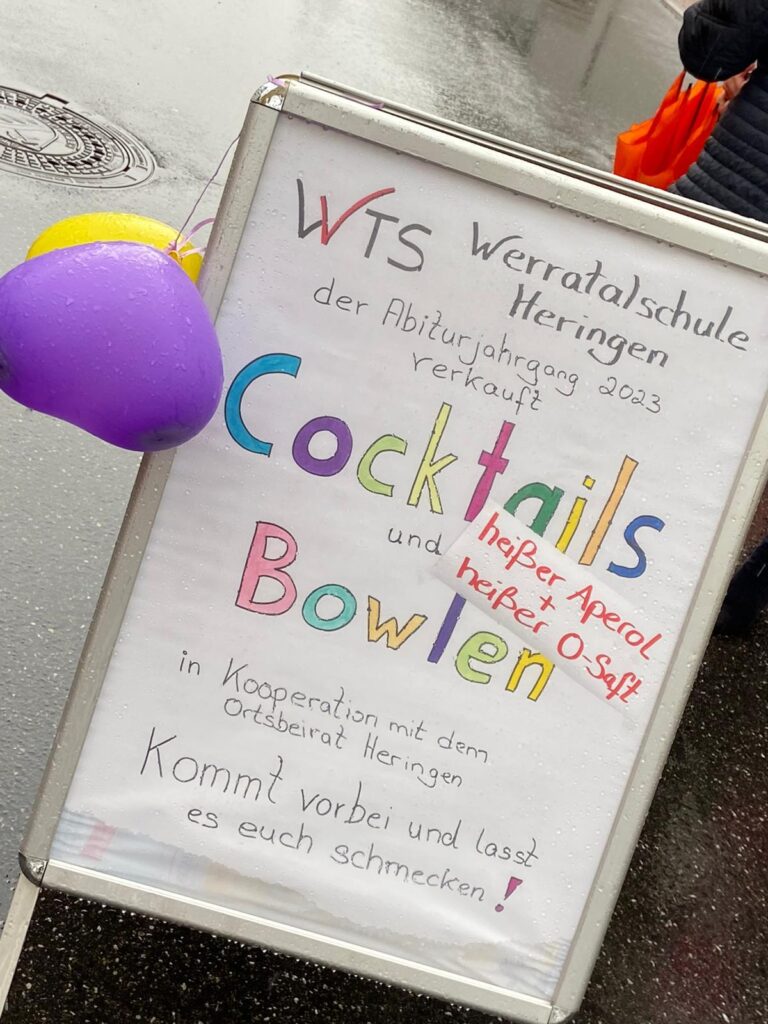 WTS Werratalschule
Heringen
der Abiturjahrgang 2023
verkauft
Cocktails
und
Bowlen
heißer Aperol
+
heißer O-Saft
in Kooperation mit dem
Ortsbeirat Heringen
Kommt vorbei und lasst
es euch schmecken!